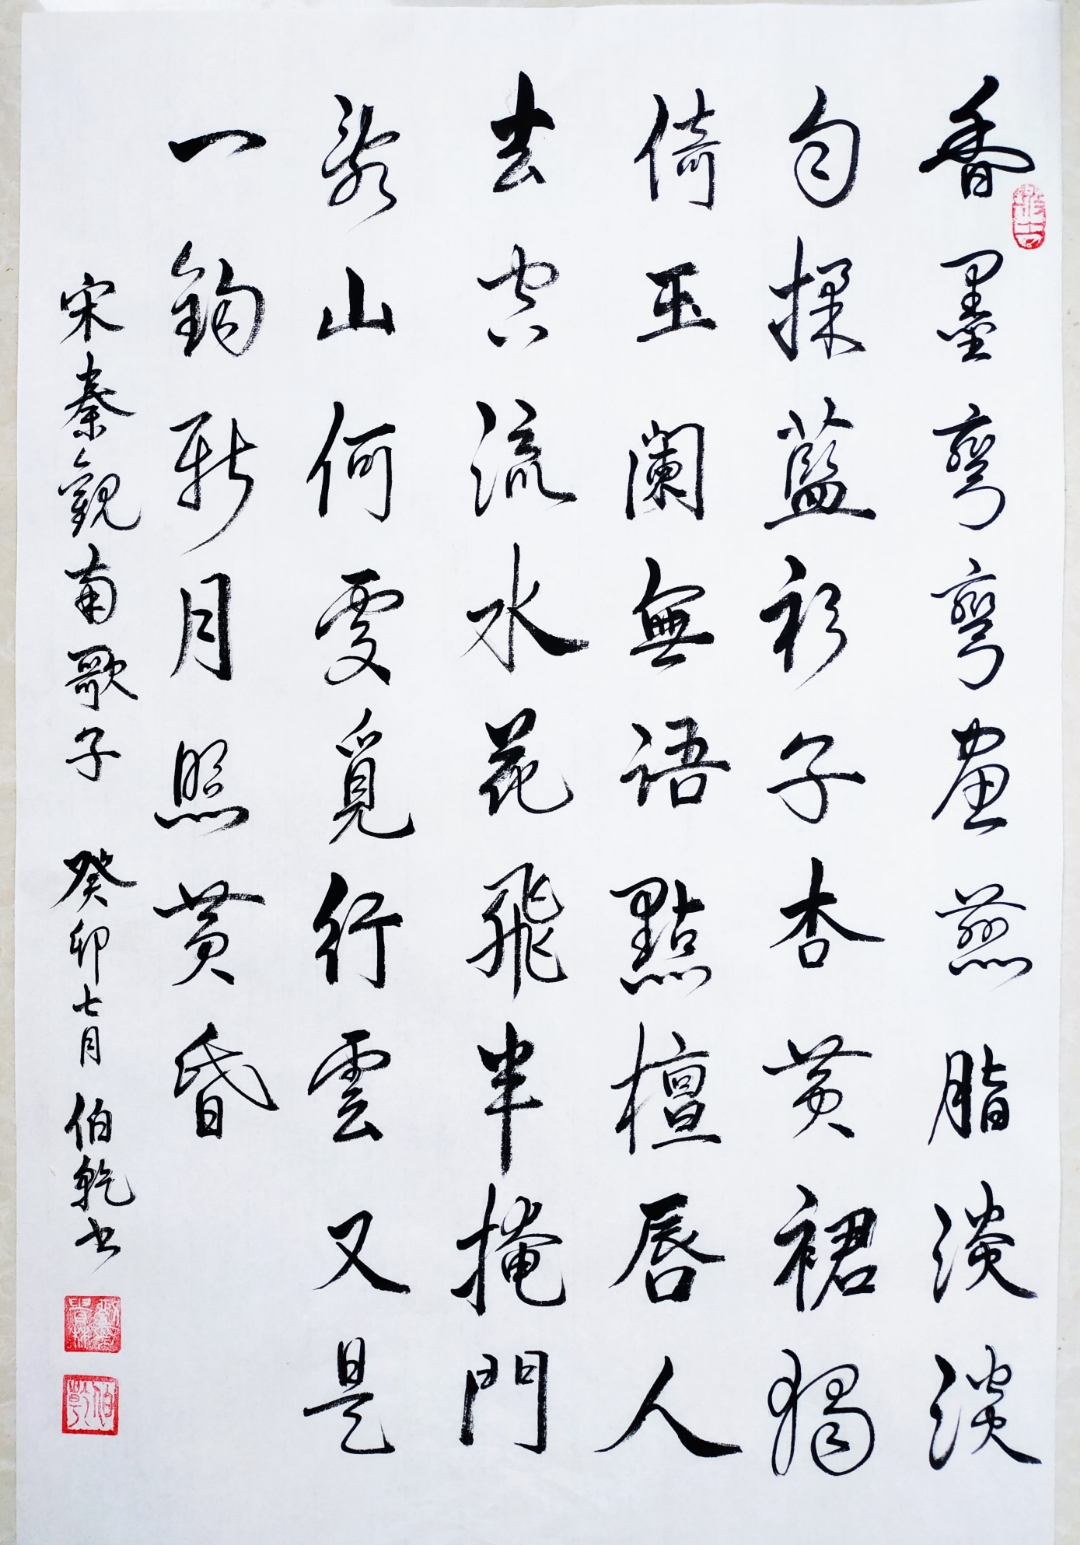 香墨彎彎畫燕脂淡淡
勻揉藍衫子杏黃裙獨
倚玉闌無語點檀唇人
去空流水花飛半掩門
亂山何處覓行雲又是
一鈎新月照黃昏
宋秦觀南歌子 癸卯七月伯乾書
伯乾